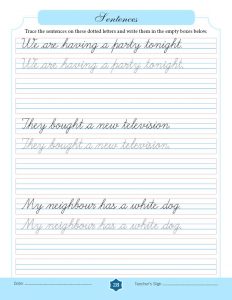 Sentences
Trace the sentences on these dotted letters and write them in the empty boxes below.
We are having a party tonight.
We are having a party tonight.
They bought a new television.
They bought a new television.
My neighbour has a white dog.
My neighbour has a white dog.
Date: 28 Teacher's Sign